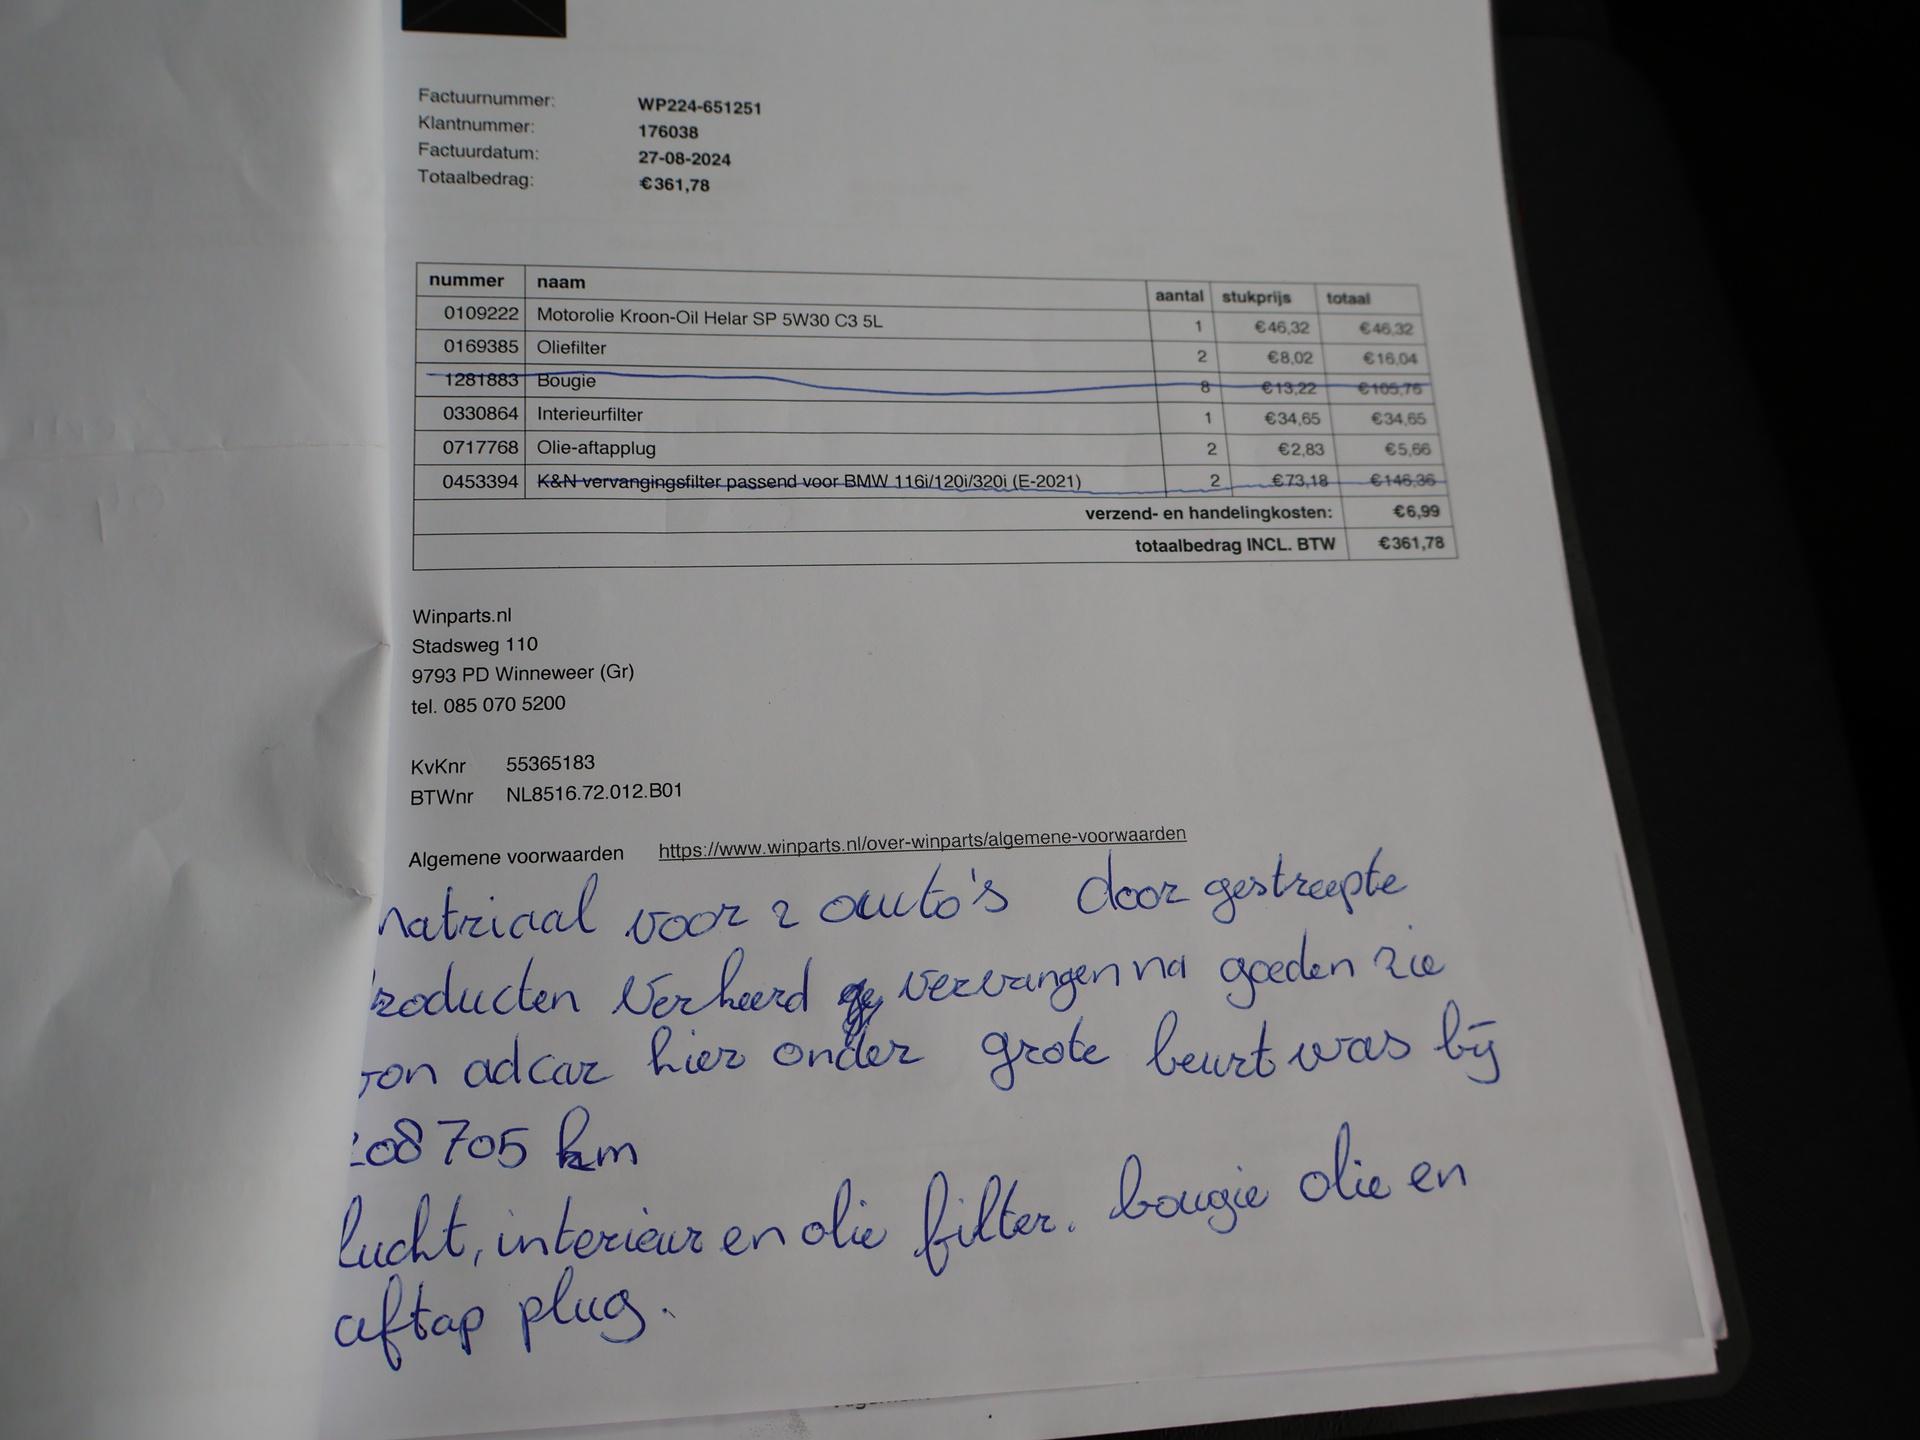 Factuurnummer: WP224-651251
Klantnummer: 176038
Factuurdatum: 27-08-2024
Totaalbedrag: €361,78
nummer naam aantal stukprijs totaal
0109222 Motorolie Kroon-Oil Helar SP 5W30 C3 5L 1 €46,32 €46,32
0169385 Oliefilter 2 €8,02 €16,04
1281883 Bougie 8 €13,22 €105,76
0330864 Interieurfilter 1 €34,65 €34,65
0717768 Olie-aftapplug 2 €2,83 €5,66
0453394 K&N vervangingsfilter passend voor BMW 116i/120i/320i (E-2021) 2 €73,18 €146,36
verzend- en handelingkosten: €6,99
totaalbedrag INCL. BTW €361,78
Winparts.nl
Stadsweg 110
9793 PD Winneweer (Gr)
tel. 085 070 5200
KvKnr 55365183
BTWnr NL8516.72.012.B01
Algemene voorwaarden https://www.winparts.nl/over-winparts/algemene-voorwaarden
matriaal voor 2 auto's door gestreepte
roducten verkeerd vervangen na goeden zie
von adcar hier onder grote beurt was bij
208705 km
lucht, interieur en olie filter. bougie olie en
aftap plug.